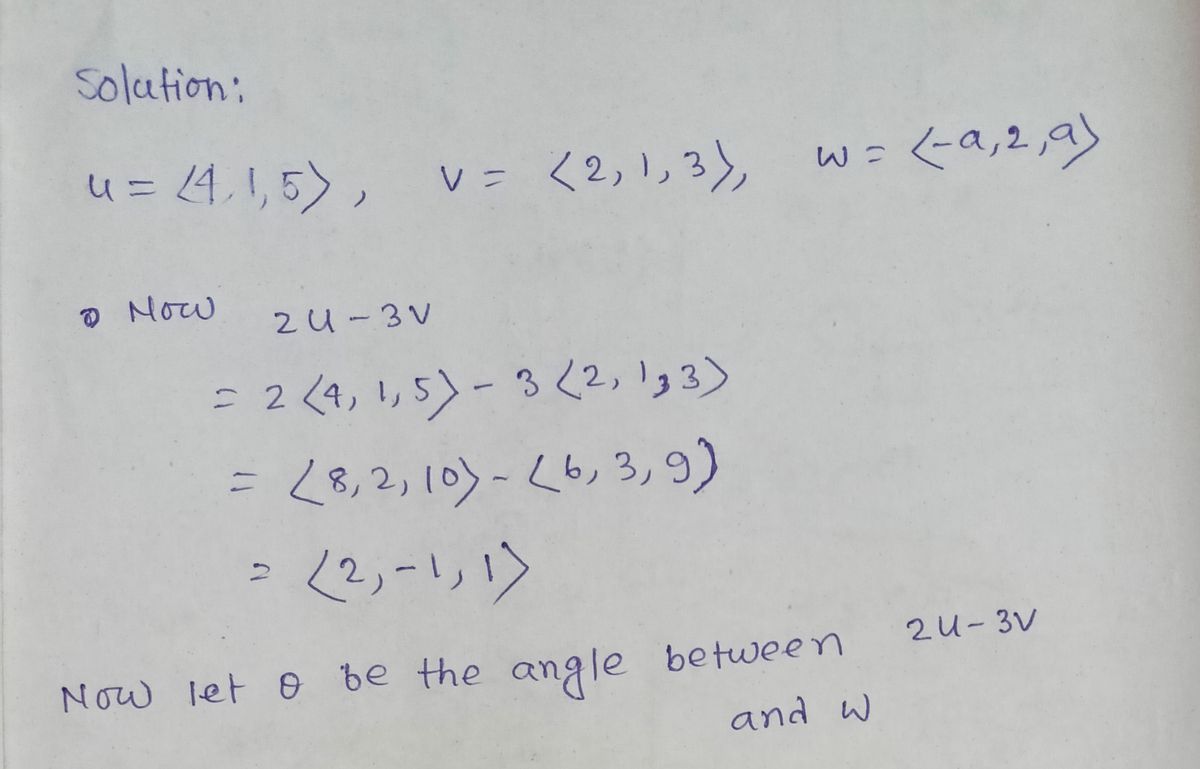 Solution:
u = <4, 1, 5>, v = <2, 1, 3>, w = <-a, 2, a>
• Now 2u - 3v
= 2<4, 1, 5> - 3<2, 1, 3>
= <8, 2, 10> - <6, 3, 9>
= <2, -1, 1>
Now let θ be the angle between 2u - 3v
and w